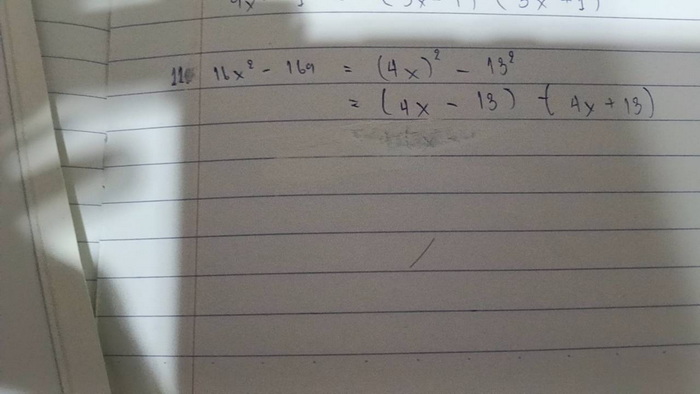 11 16x² - 169 = (4x)² - 13²
= (4x - 13) - (4x + 13)